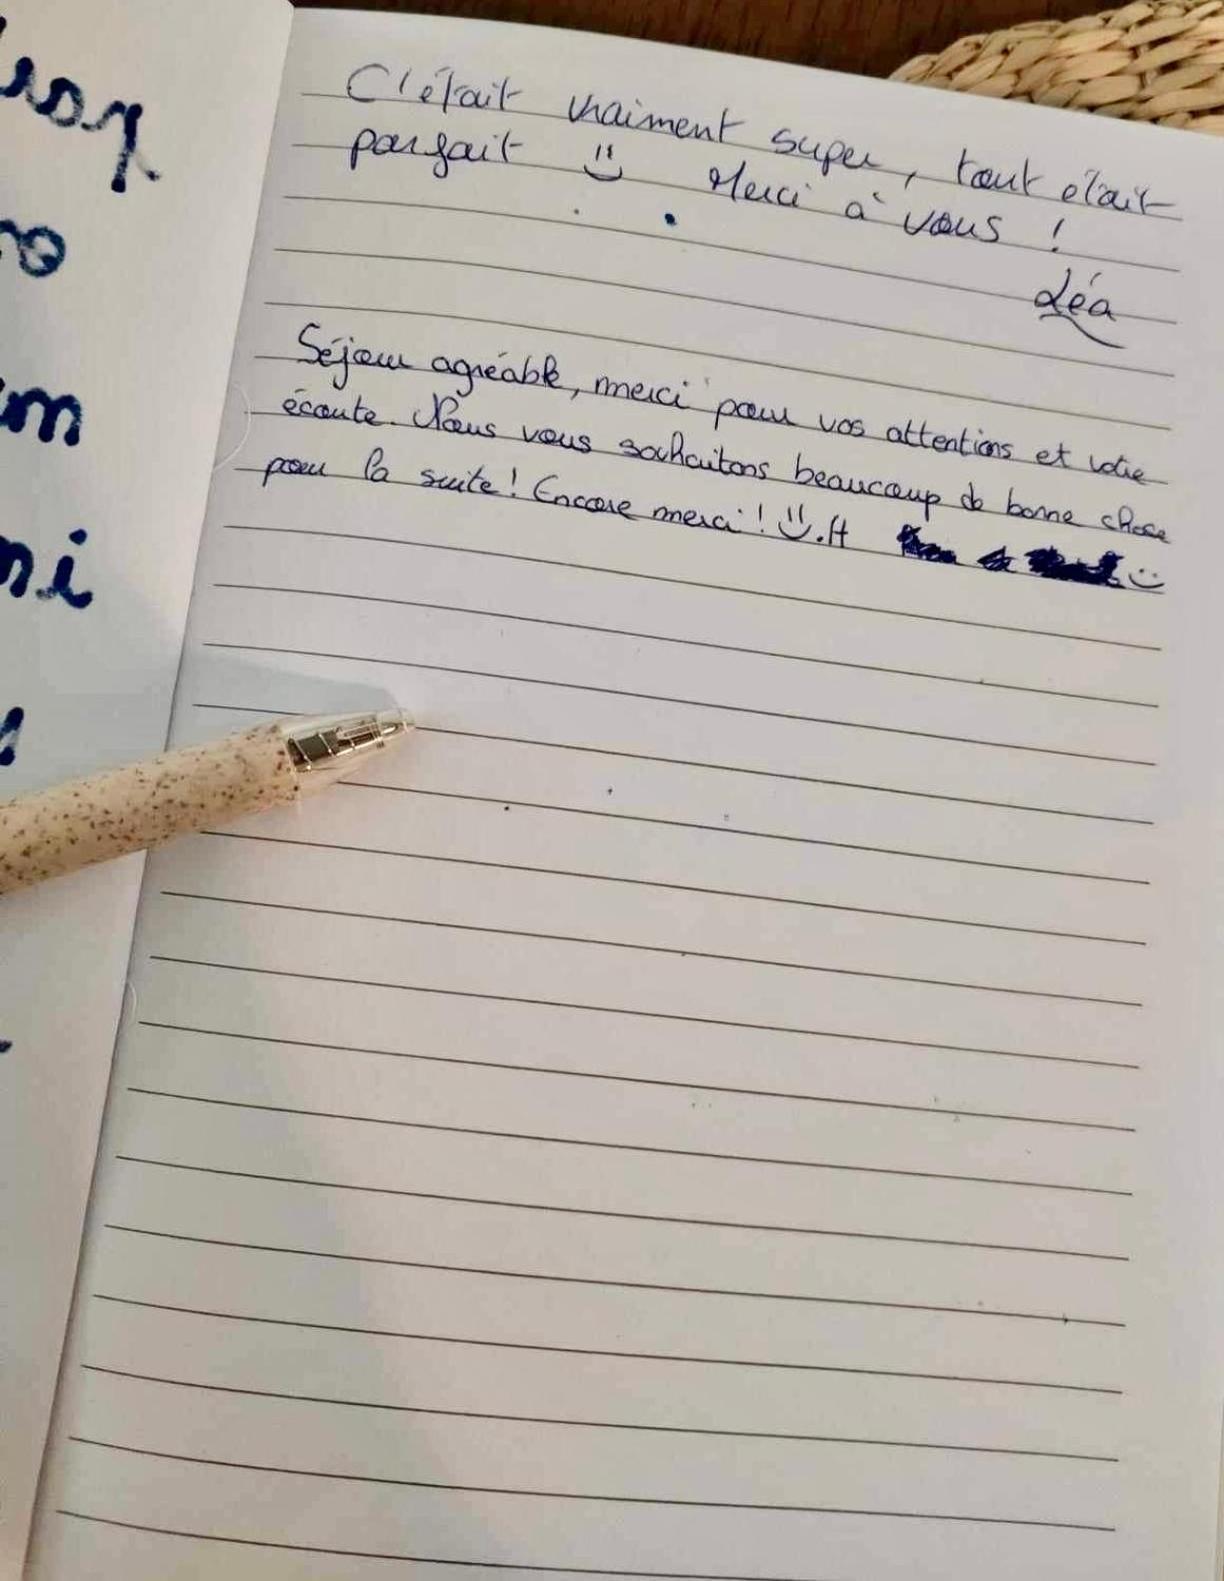 C'était vraiment super, tout était
parfait Merci à vous !
Léa
Séjour agréable, merci pour vos attentions et votre
écoute. Nous vous souhaitons beaucoup de bonne chose
pour la suite! Encore merci!